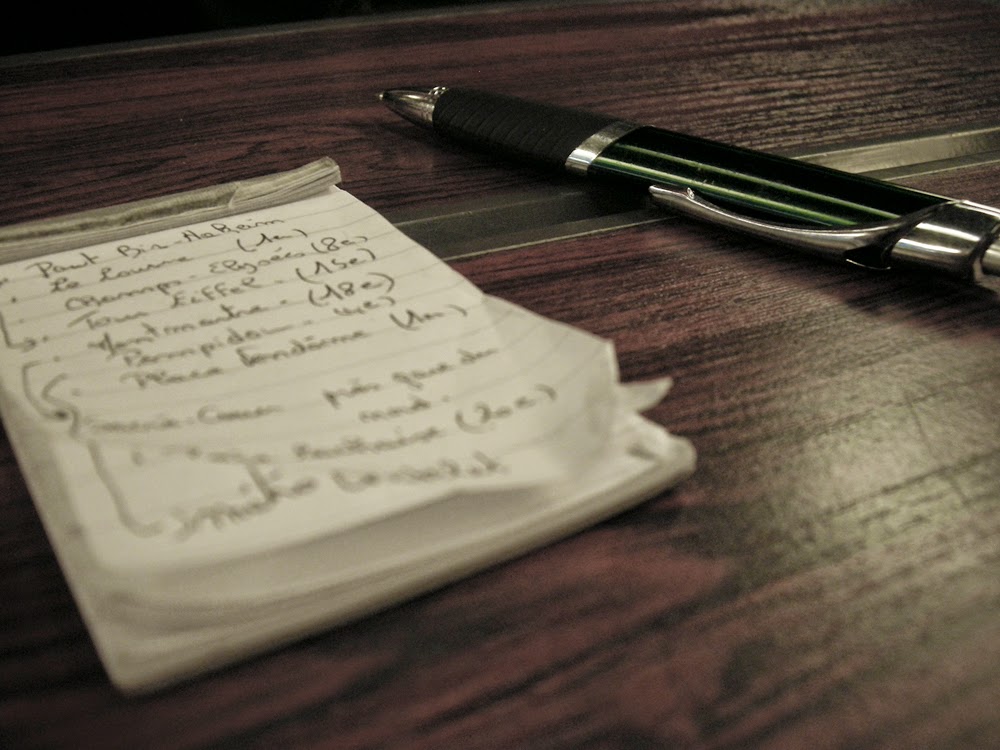 Pont Bir-Hakeim
Le Louvre (1er)
Champs-Elysées (8e)
Tour Eiffel - (15e)
Montmartre - (18e)
Pompidou - 4e)
Place Vendôme (1er)
Coeur près gare du
nord.
(20e)